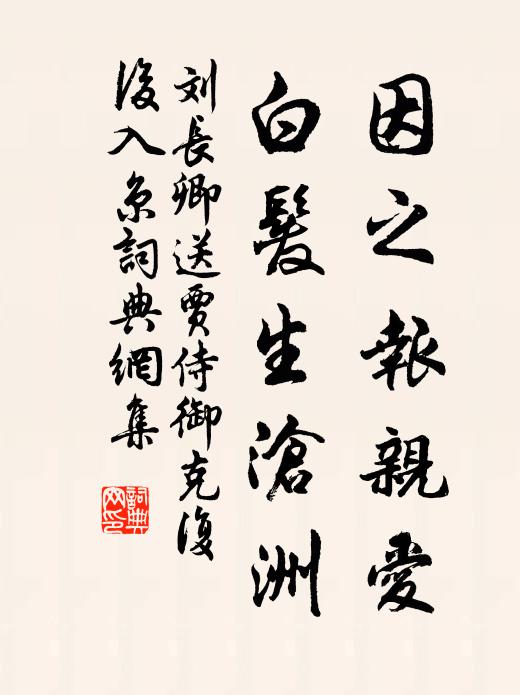 因之報親愛
白髮生滄洲
刘長卿送賈侍御克復
後入京詞典網集
詞典
网印